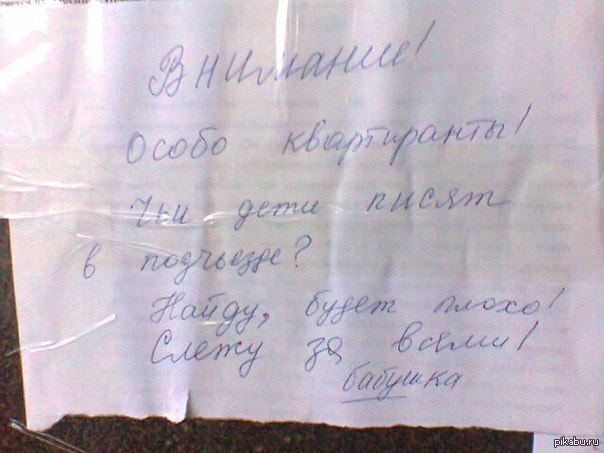 Внимание!
Особо квартиранты!
Чьи дети писят
в подъезде?
Найду, будет плохо!
Слежу за всеми!
бабушка
pikabu.ru